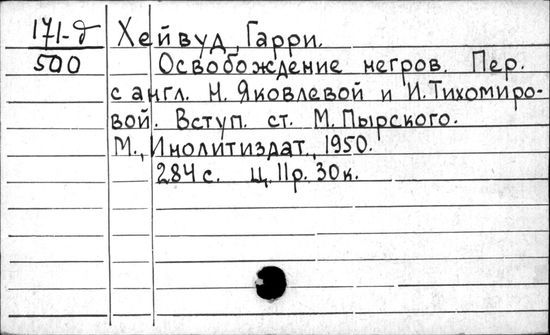 171-д
500
Хейвуд, Гарри.
Освобождение негров. Пер.
с англ. Н. Яковлевой и И. Тихомиро-
вой. Вступ. ст. М. Пырского.
М., Инолитиздат, 1950.
284 с. Ц. 11р. 30к.